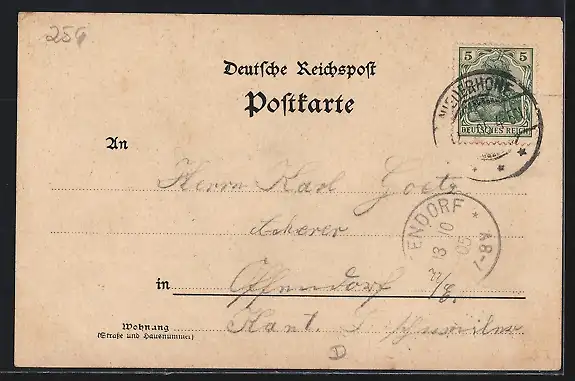 256
Deutsche Reichspost
Postkarte
5 5
DEUTSCHES REICH
NIEDERHONE
An
Herrn Karl Goetz
Ackerer
ENDORF * 7-8 V
13 10 05
in Offendorf i/E.
Kant.
Wohnung
(Straße und Hausnummer)
D